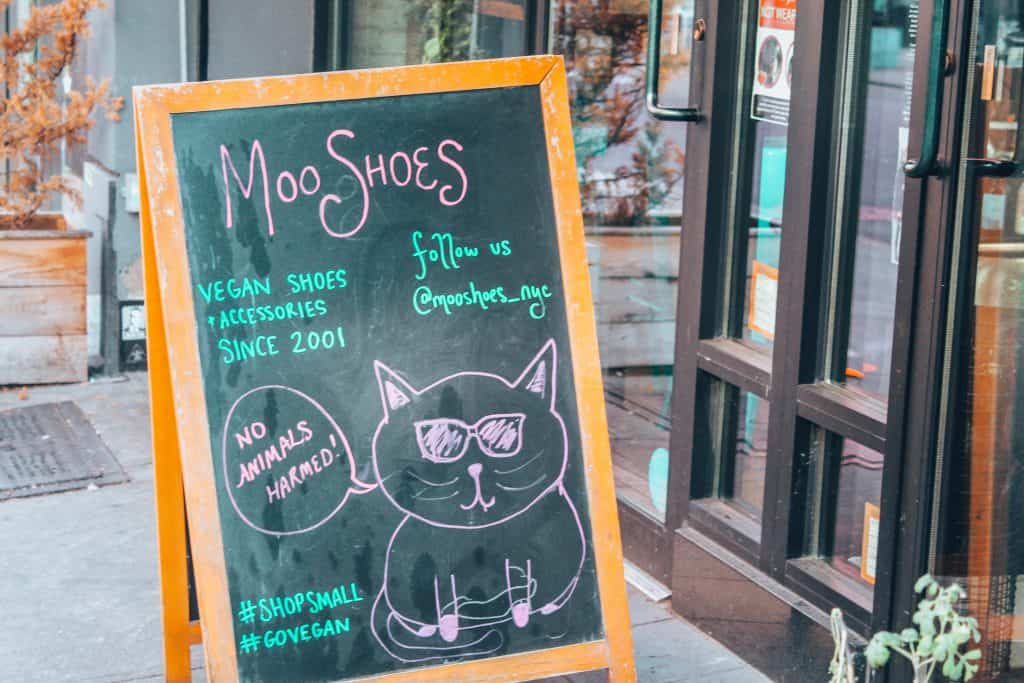 MooSHOES
follow us
@mooshoes_nyc
VEGAN SHOES
+ ACCESSORIES
SINCE 2001
NO
ANIMALS
HARMED!
#SHOPSMALL
#GOVEGAN
NOT WEAR